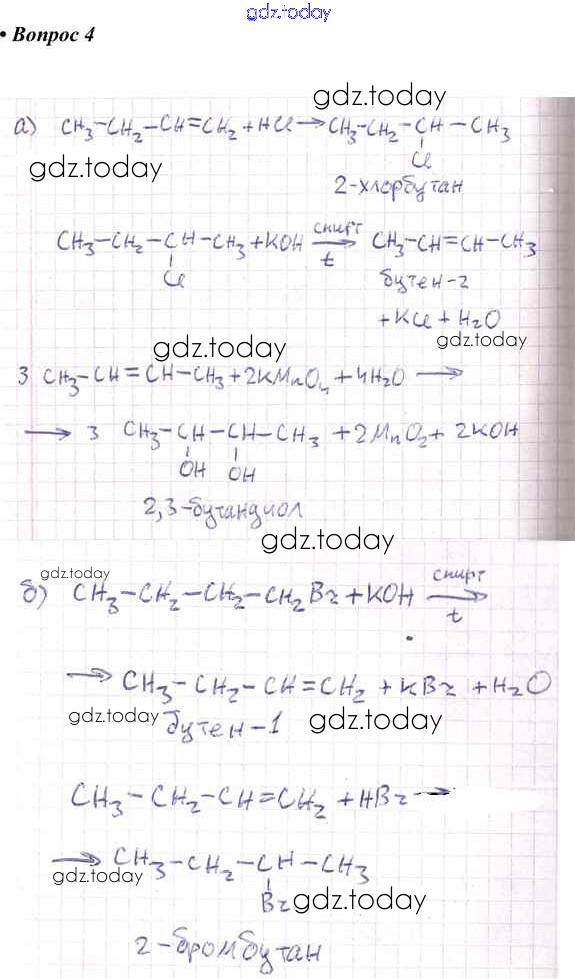 gdz.today
• Вопрос 4
gdz.today
а) CH₃-CH₂-CH=CH₂+HCl→CH₃-CH₂-CH-CH₃
Cl
gdz.today
2-хлорбутан
CH₃-CH₂-CH-CH₃+KOH спирт t → CH₃-CH=CH-CH₃
Cl
бутен-2
+KCl+H₂O
gdz.today
gdz.today
3 CH₃-CH=CH-CH₃+2KMnO₄+4H₂O →
→ 3 CH₃-CH-CH-CH₃+2MnO₂+2KOH
OH OH
2,3-бутандиол
gdz.today
gdz.today
б) CH₃-CH₂-CH₂-CH₂Br+KOH спирт t →
→ CH₃-CH₂-CH=CH₂+KBr+H₂O
gdz.today бутен-1 gdz.today
CH₃-CH₂-CH=CH₂+HBr→
→ CH₃-CH₂-CH-CH₃
gdz.today
Br gdz.today
2-бромбутан